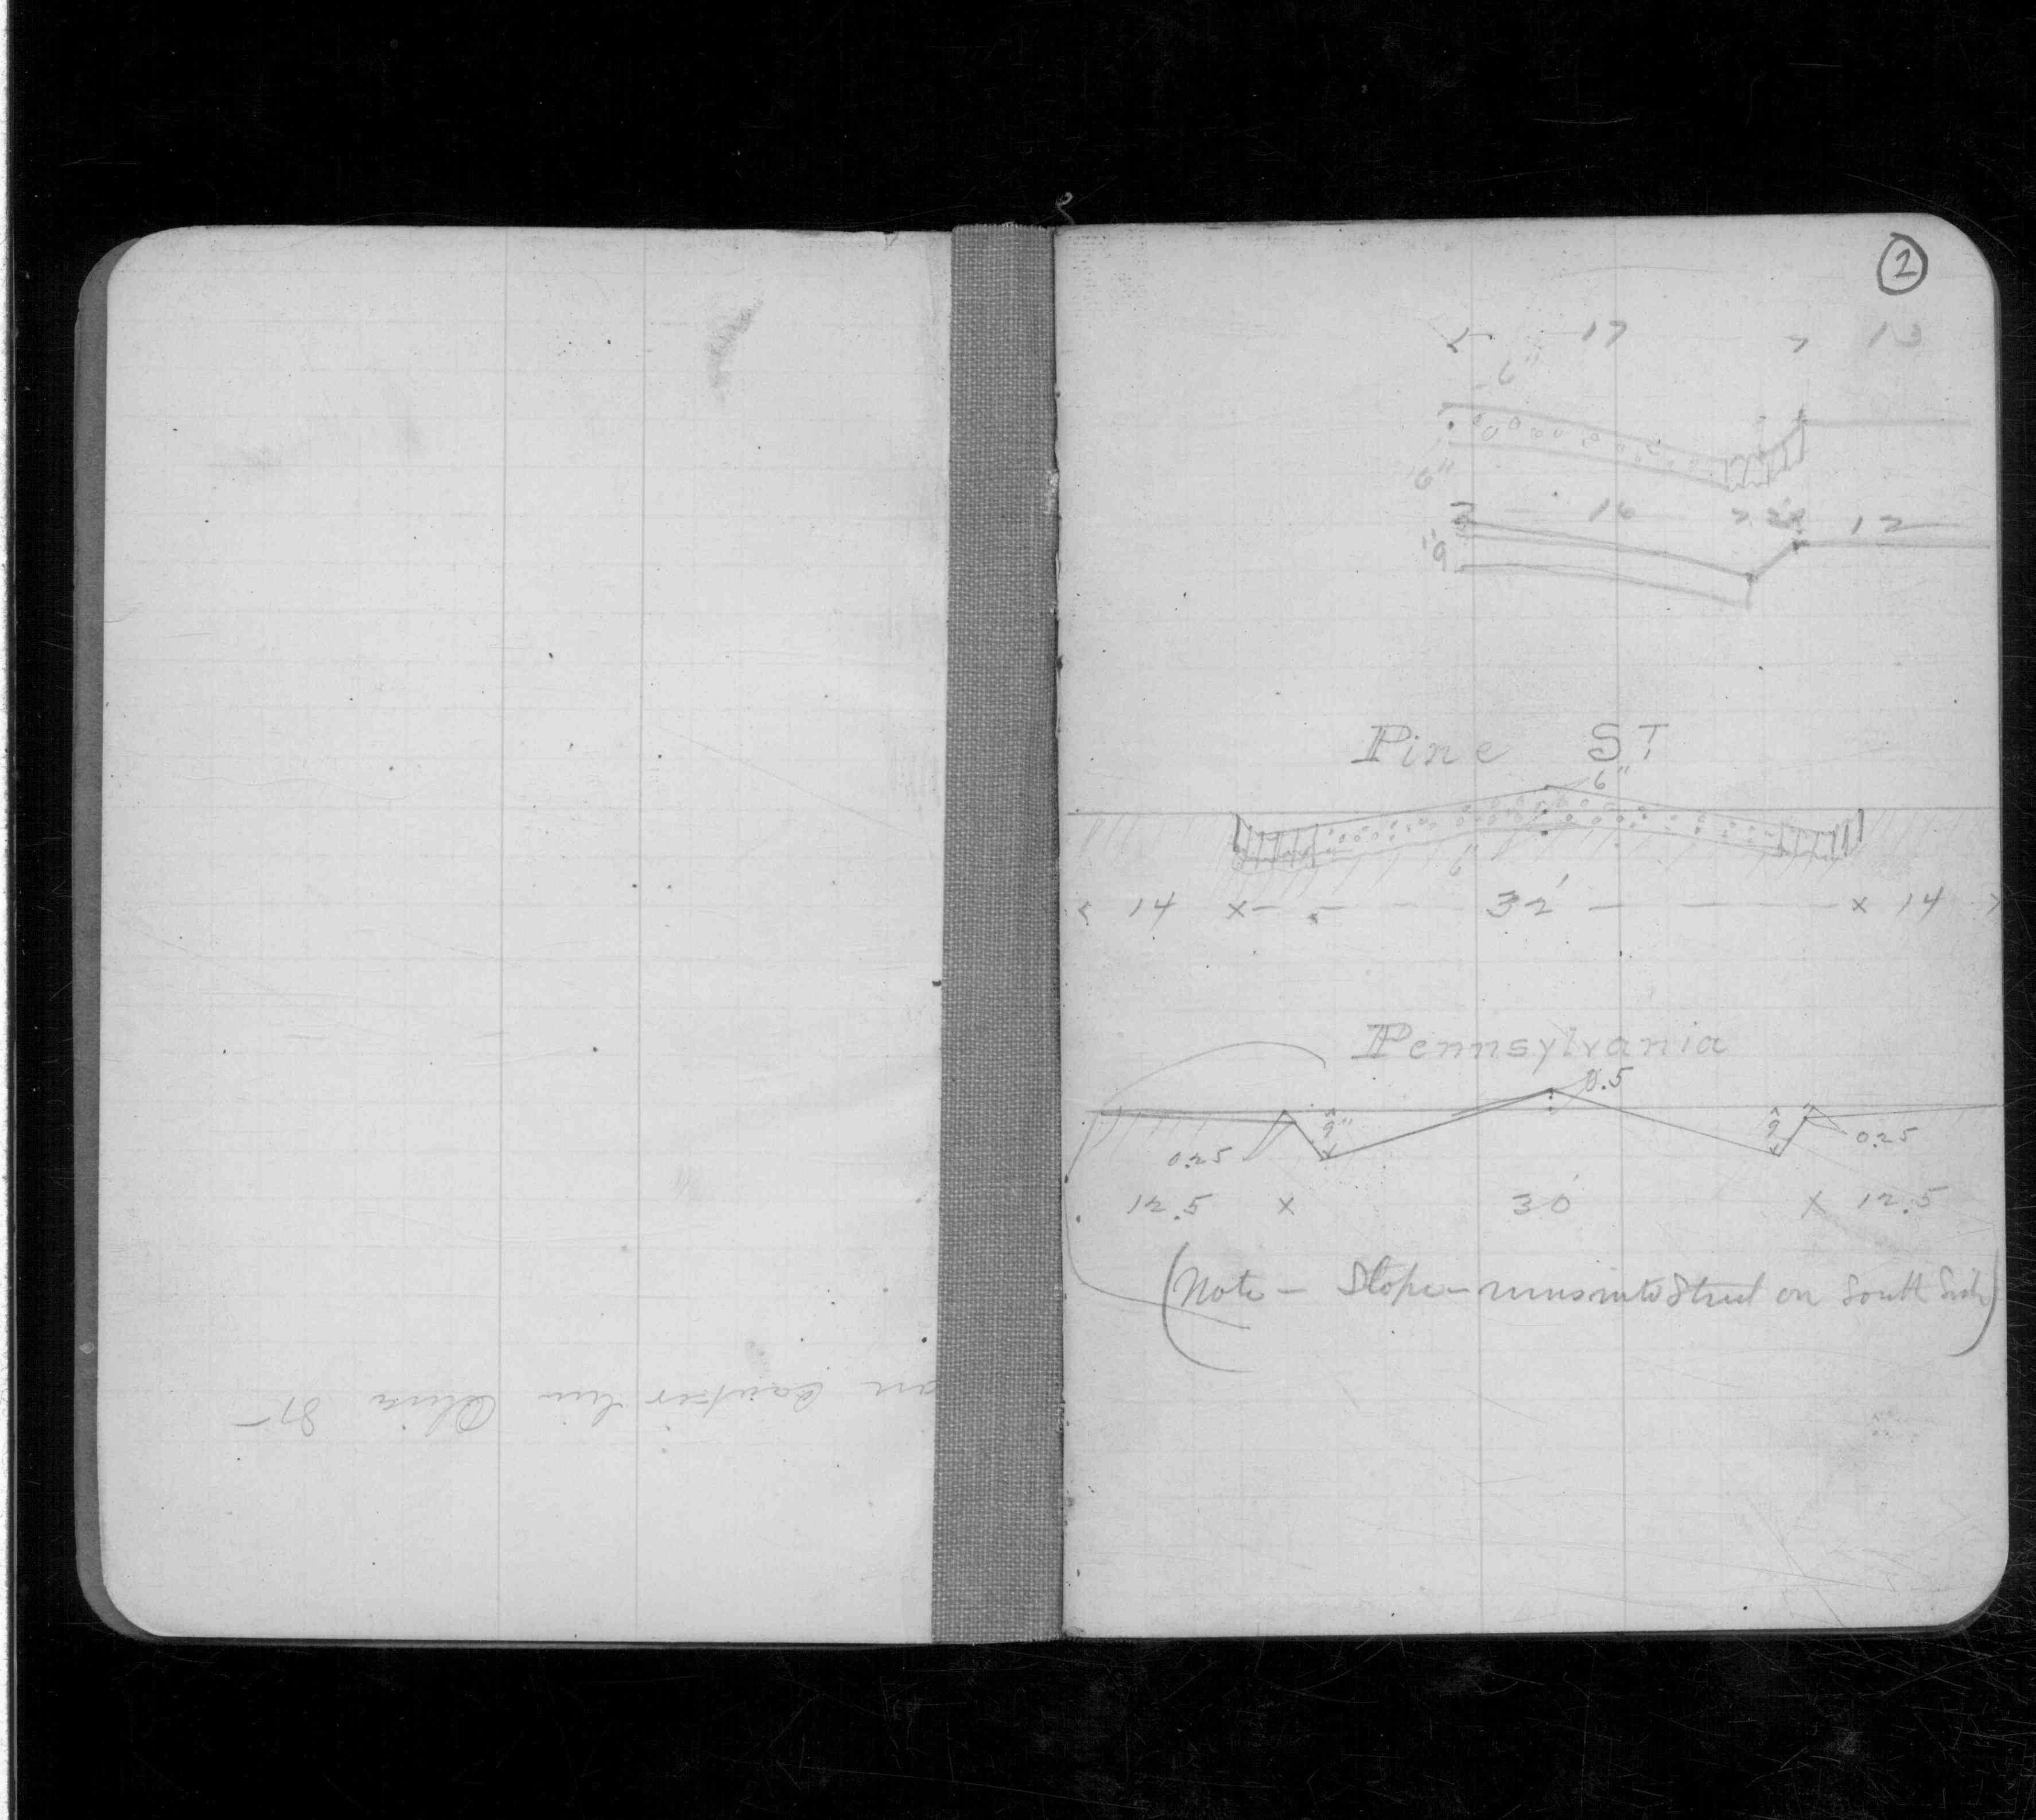 2
17 13
6"
6"
16 12
9"
Pine ST
6"
6"
14 x 32' x 14
Pennsylvania
0.5
9" 9"
0.25 0.25
12.5 x 30' x 12.5
(Note - Slope - runs into Street on South Side)
on line St